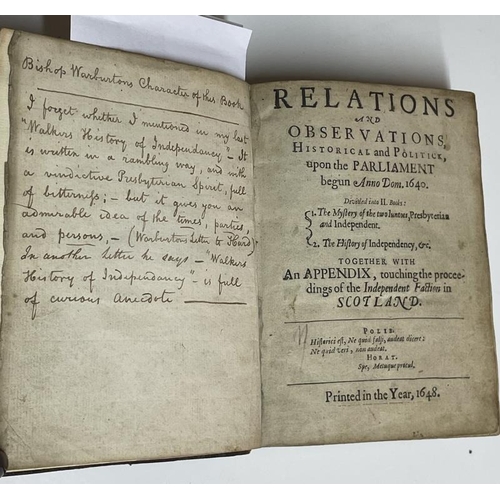 Bishop Warburtons Character of this Book
I forget whether I mentioned in my last
"Walkers History of Independancy" - It
is written in a rambling way, and with
a vindictive Presbyterian Spirit, full
of bitterness; - but it gives you an
admirable idea of the times, parties,
and persons, - (Warburtons Letter to Hurd)
In another letter he says - "Walkers
History of Independancy" - is full
of curious Anecdote
RELATIONS
AND
OBSERVATIONS,
HISTORICAL and POLITICK,
upon the PARLIAMENT
begun Anno Dom. 1640.
Devided into II. Books:
1. The Mystery of the two Iuntoes, Presbyterian
and Independent.
2. The History of Independency, &c.
TOGETHER WITH
An APPENDIX, touching the procee-
dings of the Independent Faction in
SCOTLAND.
POLIB.
Historici est, Ne quid falsi, audeat dicere:
Ne quid veri, non audeat.
HORAT.
Spe, Metuque procul.
Printed in the Year, 1648.